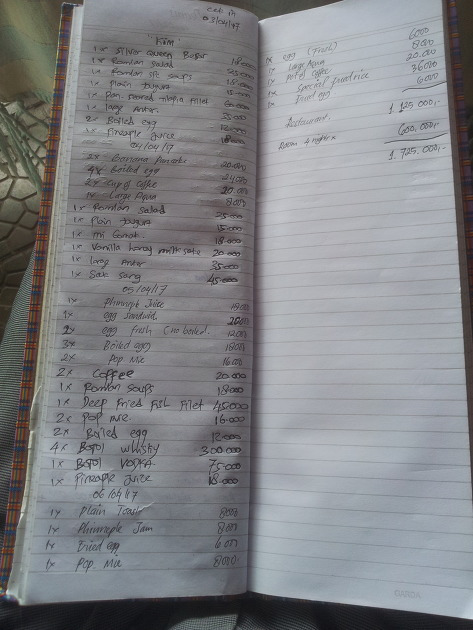 cek in
03/04/17
"Kim"
1x Silver Queen Besar
1x Romlan salad 25.000
1x Romlan spc soups
1x Plain yougurt 15.000
1x Pan Fried tilapia Fillet
1x large Anker
2x Boiled egg 12.000
1x Pineaple Juice 18.000
04/04/17
2x Banana pancake 20.000
4x Boiled egg 24.000
2x Cup of Coffee 20.000
1x Large Aqua 8.000
1x Romlan Salad 25.000
1x Plain yougurt 15.000
1x Mi Goreng 18.000
1x Vanilla honey milk sake 20.000
1x large Anker 35.000
1x Sate 45.000
05/04/17
1x Phineaple Juice 18.000
1x egg sandwid 20.000
2x egg fresh (no boiled. 12.000
3x Boiled egg 18.000
2x Pop Mie 16.000
2x Coffee 20.000
1x Romlan Soups 18.000
1x Deep Fried Fish Filet 45.000
2x Pop mie 16.000
2x Boiled egg 12.000
4x Botol whisky 300.000
1x Botol VODKA 75.000
1x Pineaple Juice 18.000
06/04/17
1x Plain Toast 8.000
1x Phineaple Jam 8.000
1x Fried egg 6.000
1x Pop Mie 8.000
1x egg (Fresh) 6000
1x Large Aqua 8.000
Coffee 20.000
Special Fried rice 36.000
1x Fried egg 6.000
Restaurant. 1.125.000,-
Room 4 nights 600.000,-
1.725.000,-